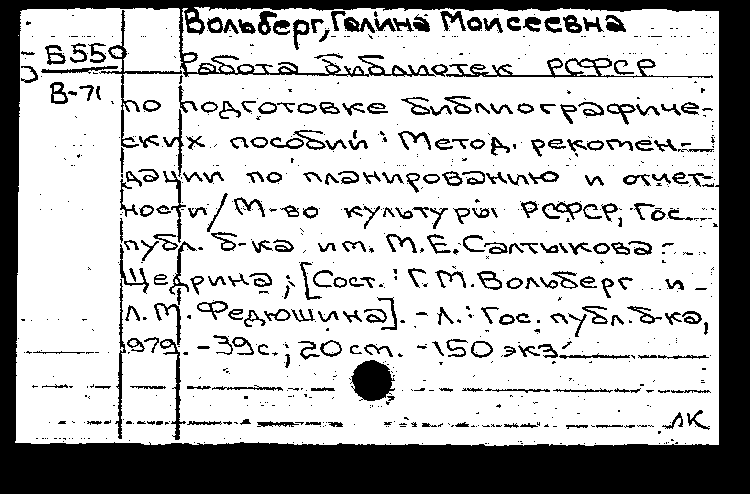 Вольберг, Галина Моисеевна
В550
Работа библиотек РСФСР
В-71
по подготовке библиографиче-
ских пособий: Метод. рекомен-
дации по планированию и отчет-
ности/М-во культуры РСФСР, Гос.
публ. б-ка им. М.Е. Салтыкова-
Щедрина; [Сост.: Г.М. Вольберг и
Л.М. Федюшина]. - Л.: Гос. публ. б-ка,
1979. - 39 с.; 20 см. - 150 экз.
ЛК